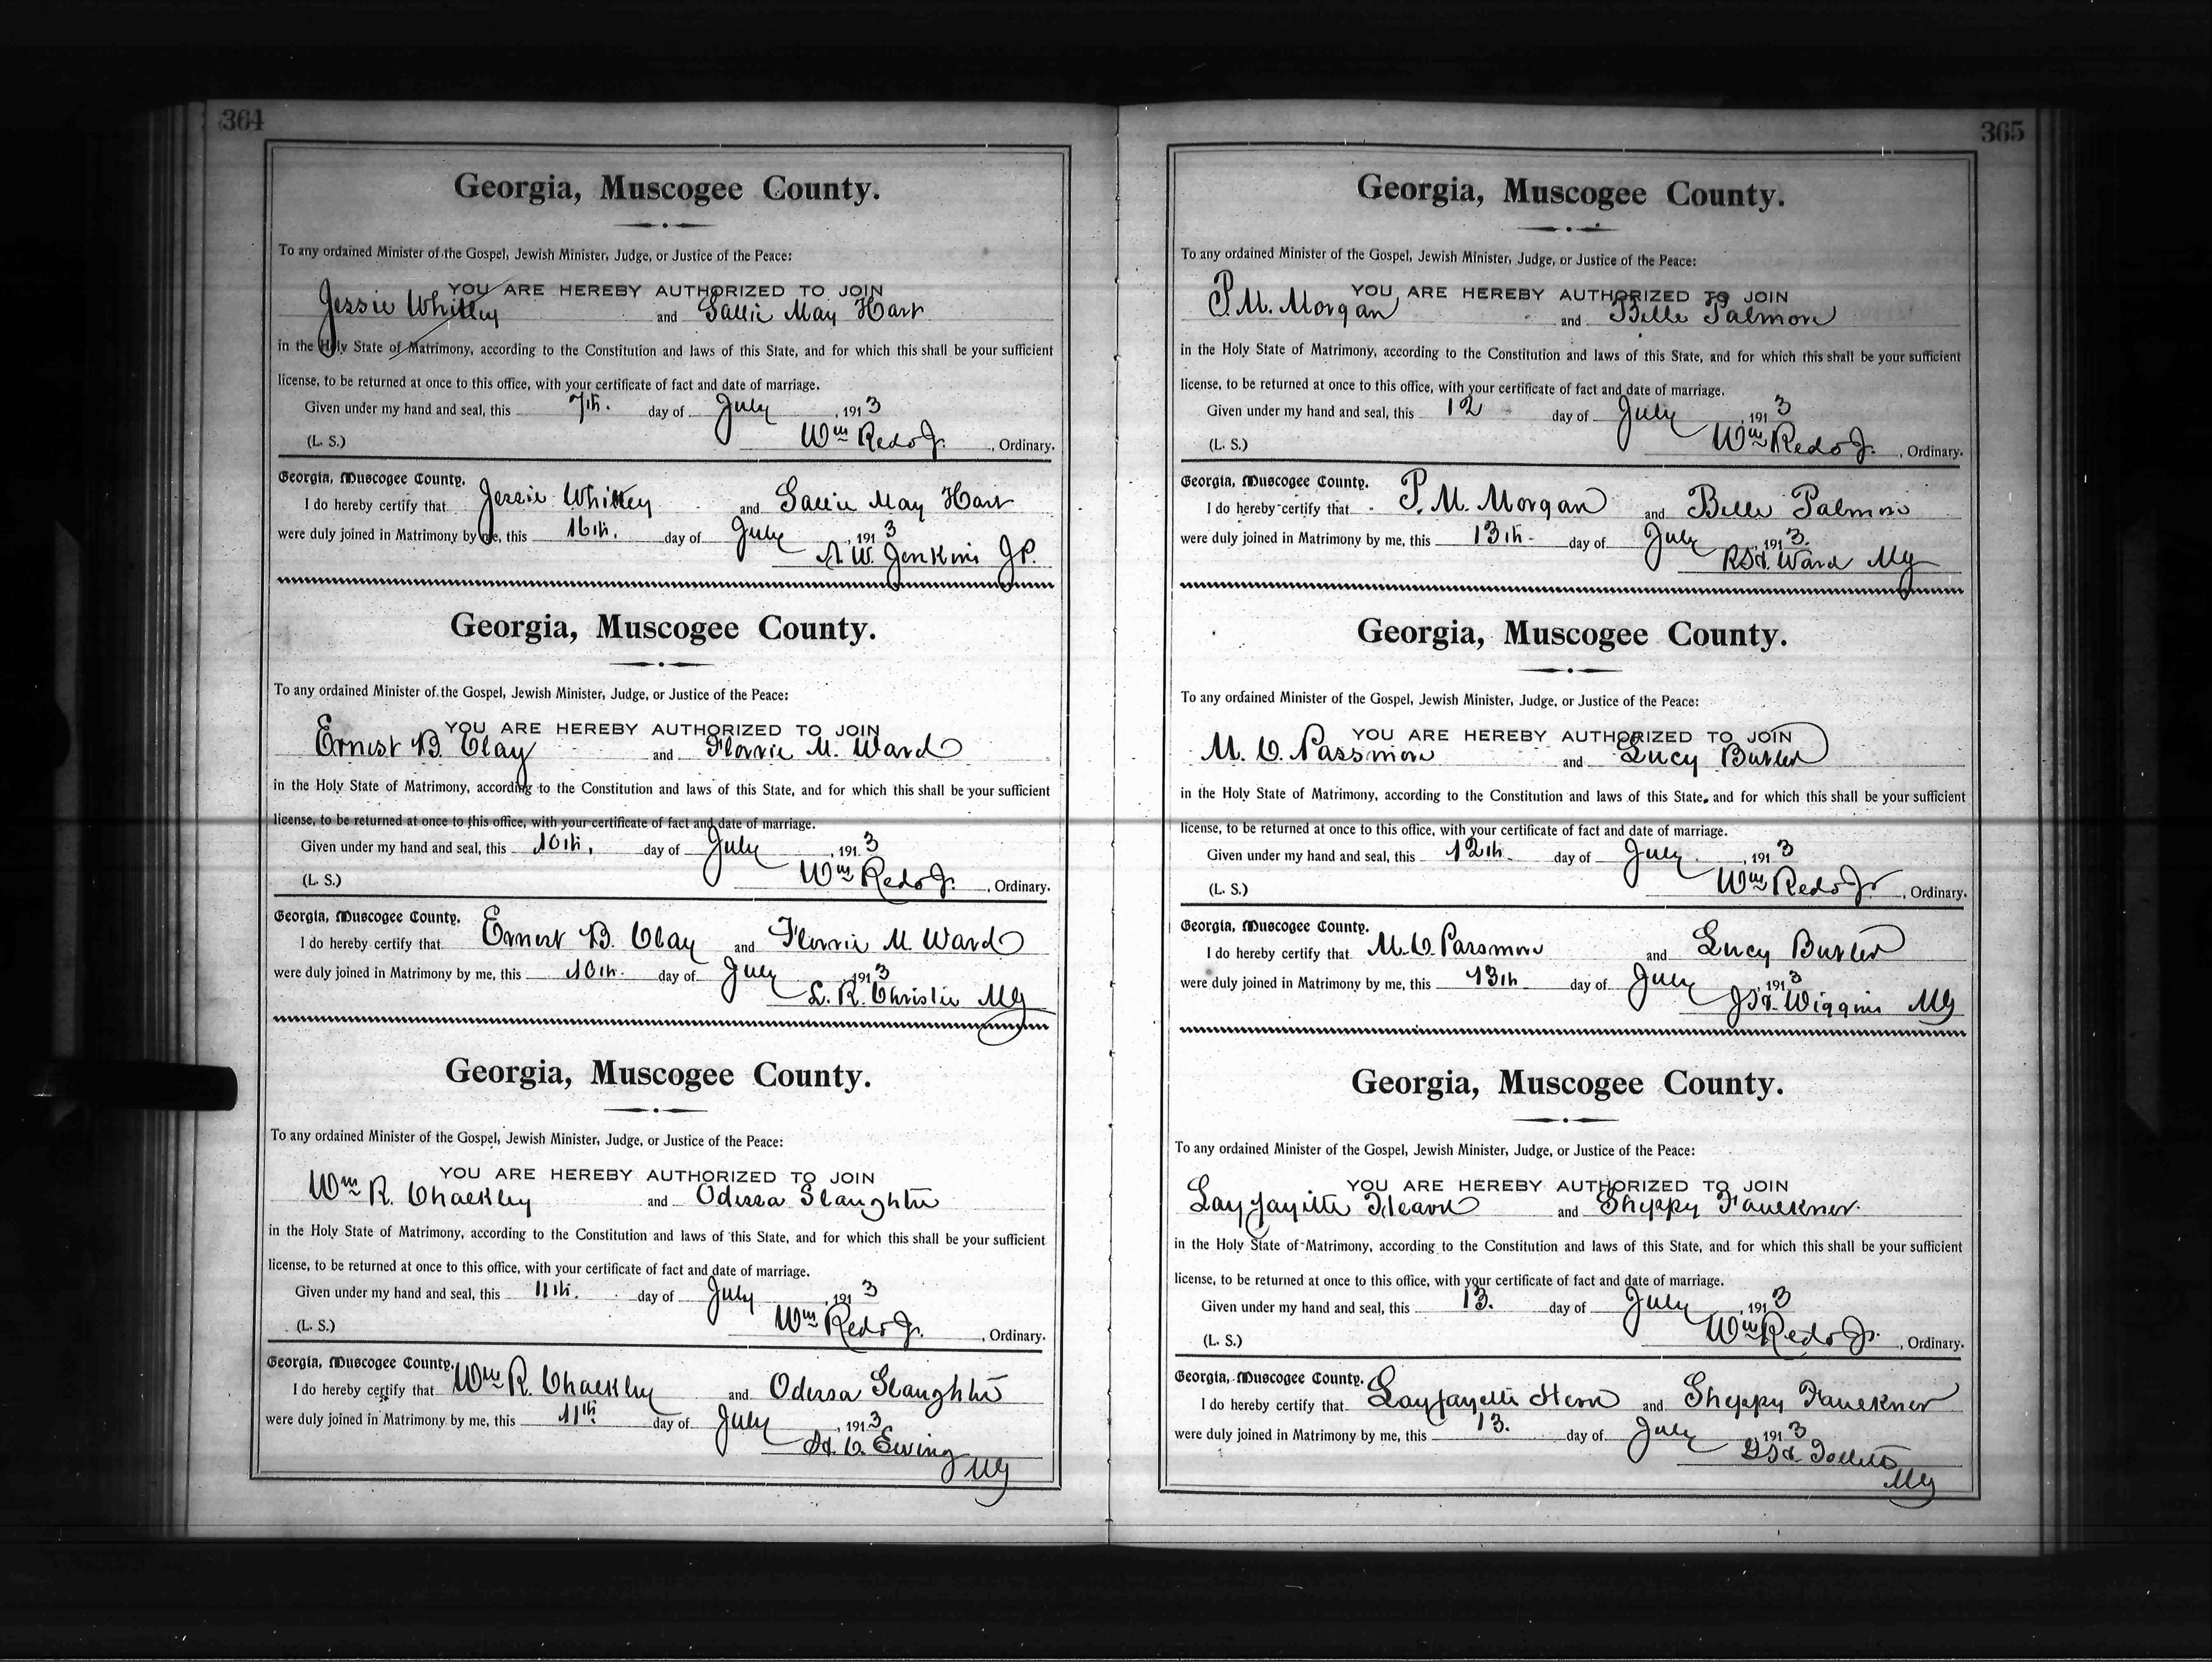 364
Georgia, Muscogee County.
To any ordained Minister of the Gospel, Jewish Minister, Judge, or Justice of the Peace:
YOU ARE HEREBY AUTHORIZED TO JOIN
Jessie Whitley and Sallie May Hart
in the Holy State of Matrimony, according to the Constitution and laws of this State, and for which this shall be your sufficient
license, to be returned at once to this office, with your certificate of fact and date of marriage.
Given under my hand and seal, this 7th. day of July, 1913
(L. S.) Wm Redd Jr., Ordinary.
Georgia, Muscogee County.
I do hereby certify that Jessie Whitley and Sallie May Hart
were duly joined in Matrimony by me, this 16th. day of July, 1913
A. W. Jenkins JP.
Georgia, Muscogee County.
To any ordained Minister of the Gospel, Jewish Minister, Judge, or Justice of the Peace:
YOU ARE HEREBY AUTHORIZED TO JOIN
Ernest B. Clay and Florrie M. Ward
in the Holy State of Matrimony, according to the Constitution and laws of this State, and for which this shall be your sufficient
license, to be returned at once to this office, with your certificate of fact and date of marriage.
Given under my hand and seal, this 10th. day of July, 1913
(L. S.) Wm Redd Jr., Ordinary.
Georgia, Muscogee County.
I do hereby certify that Ernest B. Clay and Florrie M. Ward
were duly joined in Matrimony by me, this 10th. day of July, 1913
L. R. Christie MG
Georgia, Muscogee County.
To any ordained Minister of the Gospel, Jewish Minister, Judge, or Justice of the Peace:
YOU ARE HEREBY AUTHORIZED TO JOIN
Wm R. Chalkley and Odessa Slaughter
in the Holy State of Matrimony, according to the Constitution and laws of this State, and for which this shall be your sufficient
license, to be returned at once to this office, with your certificate of fact and date of marriage.
Given under my hand and seal, this 11th. day of July, 1913
(L. S.) Wm Redd Jr., Ordinary.
Georgia, Muscogee County.
I do hereby certify that Wm R. Chalkley and Odessa Slaughter
were duly joined in Matrimony by me, this 11th. day of July, 1913
H. C. Ewing
MG
365
Georgia, Muscogee County.
To any ordained Minister of the Gospel, Jewish Minister, Judge, or Justice of the Peace:
YOU ARE HEREBY AUTHORIZED TO JOIN
P. M. Morgan and Belle Palmore
in the Holy State of Matrimony, according to the Constitution and laws of this State, and for which this shall be your sufficient
license, to be returned at once to this office, with your certificate of fact and date of marriage.
Given under my hand and seal, this 12 day of July, 1913
(L. S.) Wm Redd Jr., Ordinary.
Georgia, Muscogee County.
I do hereby certify that P. M. Morgan and Belle Palmore
were duly joined in Matrimony by me, this 13th. day of July, 1913.
Ward MG
Georgia, Muscogee County.
To any ordained Minister of the Gospel, Jewish Minister, Judge, or Justice of the Peace:
YOU ARE HEREBY AUTHORIZED TO JOIN
M. C. Passmore and Lucy Butler
in the Holy State of Matrimony, according to the Constitution and laws of this State, and for which this shall be your sufficient
license, to be returned at once to this office, with your certificate of fact and date of marriage.
Given under my hand and seal, this 12th. day of July, 1913
(L. S.) Wm Redd Jr, Ordinary.
Georgia, Muscogee County.
I do hereby certify that M. C. Passmore and Lucy Butler
were duly joined in Matrimony by me, this 13th day of July, 1913
J. H. Wiggins MG
Georgia, Muscogee County.
To any ordained Minister of the Gospel, Jewish Minister, Judge, or Justice of the Peace:
YOU ARE HEREBY AUTHORIZED TO JOIN
Layfayitte Hearn and Sheppy Faulkner.
in the Holy State of Matrimony, according to the Constitution and laws of this State, and for which this shall be your sufficient
license, to be returned at once to this office, with your certificate of fact and date of marriage.
Given under my hand and seal, this 13. day of July, 1913
(L. S.) Wm Redd Jr., Ordinary.
Georgia, Muscogee County.
I do hereby certify that Layfayette Hern and Sheppy Faulkner
were duly joined in Matrimony by me, this 13. day of July 1913
MG